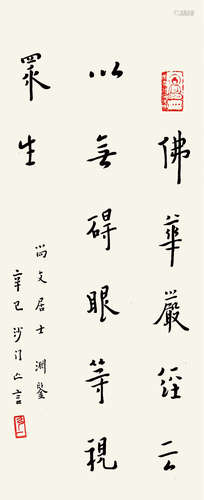 佛華嚴經云
以無碍眼等視
眾生
尚文居士淵鑒
辛巳沙門亡言